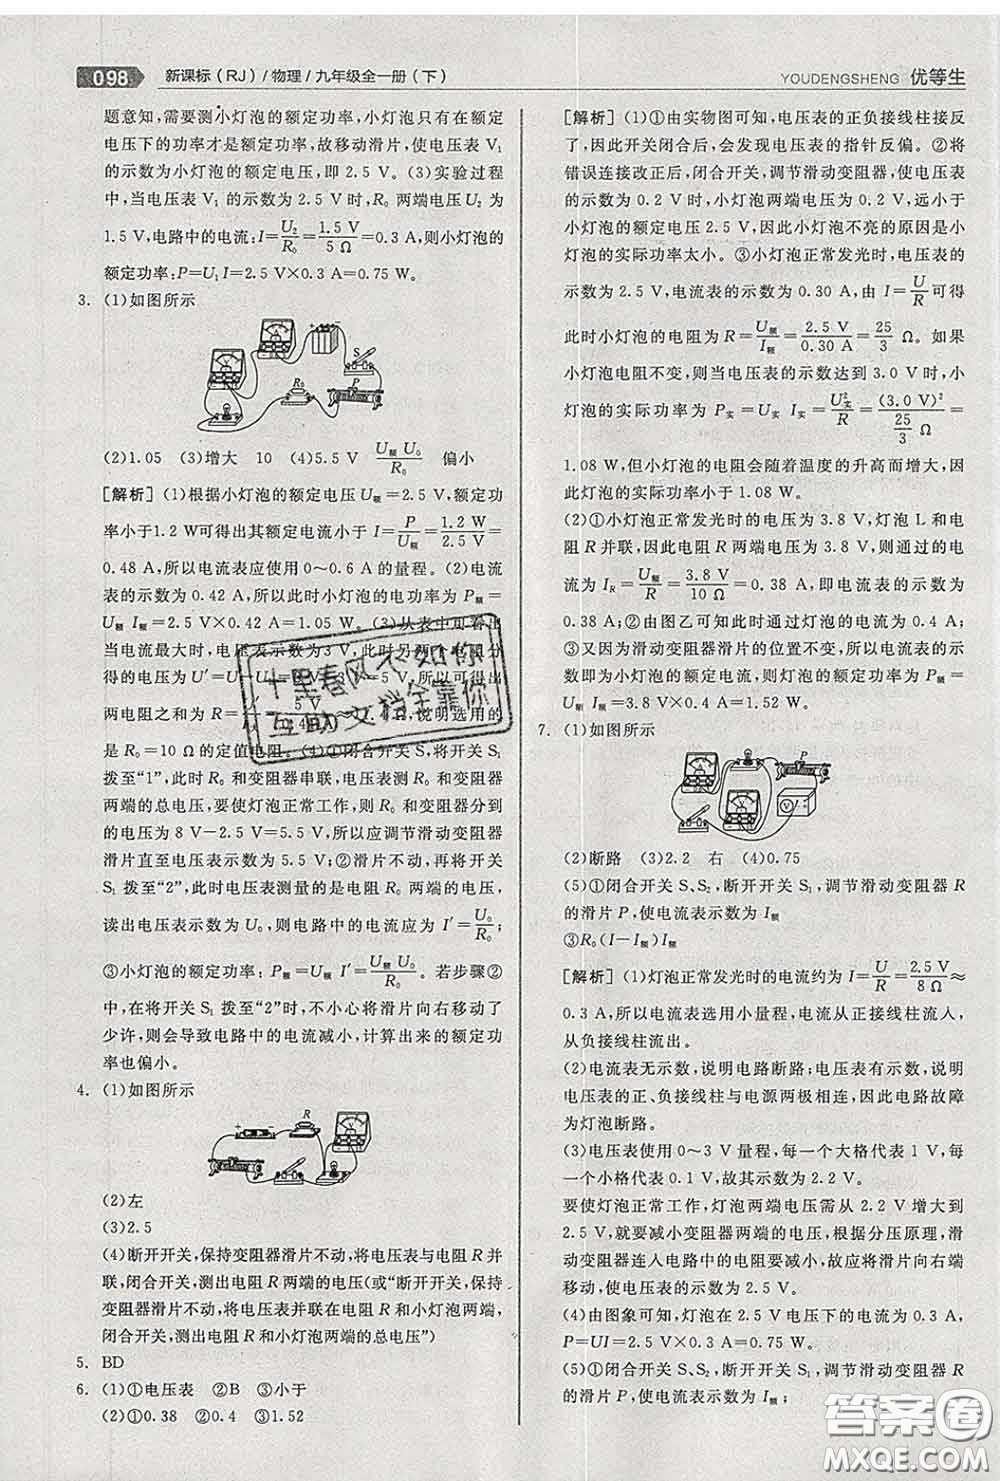 098 新课标(RJ)/物理/九年级全一册(下)
YOUDENGSHENG 优等生
题意知,需要测小灯泡的额定功率,小灯泡只有在额定
电压下的功率才是额定功率,故移动滑片,使电压表 V₁
的示数为小灯泡的额定电压,即 2.5 V。(3)实验过程
中,当电压表 V₁ 的示数为 2.5 V 时,R₀ 两端电压 U₂ 为
1.5 V,电路中的电流:I=U₂/R₀=1.5 V/5 Ω=0.3 A,则小灯泡的
额定功率:P=U₁I=2.5 V×0.3 A=0.75 W。
3. (1)如图所示
S
R₀ P
(2)1.05 (3)增大 10 (4)5.5 V U额U₀/R₀ 偏小
[解析] (1)根据小灯泡的额定电压 U额=2.5 V,额定功
率小于1.2 W可得出其额定电流小于 I=P/U额=1.2 W/2.5 V=
0.48 A,所以电流表应使用 0~0.6 A 的量程。(2)电流
表的示数为 0.42 A,所以此时小灯泡的电功率 P额=
U额 I=2.5 V×0.42 A=1.05 W。(3)从表中可看出
当电流最大时,小灯泡的电压为 2.5 V,此时另两个电阻分
得的电压为 U′=U-U额=
,所以可得出
两电阻之和为 R=
5 V
,说明选用的
是 R₀=10 Ω 的定值电阻。(4)①闭合开关 S,将开关 S₁
拨至“1”,此时 R₀ 和变阻器串联,电压表测 R₀ 和变阻器
两端的总电压,要使灯泡正常工作,则 R₀ 和变阻器分到
的电压为 8 V-2.5 V=5.5 V,所以应调节滑动变阻器
滑片直至电压表示数为 5.5 V;②滑片不动,再将开关
S₁ 拨至“2”,此时电压表测量的是电阻 R₀ 两端的电压,
读出电压表示数为 U₀,则电路中的电流应为 I′=U₀/R₀;
③小灯泡的额定功率:P额=U额 I′=U额U₀/R₀。若步骤②
中,在将开关 S₁ 拨至“2”时,不小心将滑片向右移动了
少许,则会导致电路中的电流减小,计算出来的额定功
率也偏小。
4. (1)如图所示
R
(2)左
(3)2.5
(4)断开开关,保持变阻器滑片不动,将电压表与电阻 R 并
联,闭合开关,测出电阻 R 两端的电压(或“断开开关,保持
变阻器滑片不动,将电压表并联在电阻 R 和小灯泡两端,
闭合开关,测出电阻 R 和小灯泡两端的总电压”)
5. BD
6. (1)①电压表 ②B ③小于
(2)①0.38 ②0.4 ③1.52
[解析] (1)①由实物图可知,电压表的正负接线柱接反
了,因此开关闭合后,会发现电压表的指针反偏。②将
错误连接改正后,闭合开关,调节滑动变阻器,发现电压
表的示数为 0.2 V 时,小灯泡两端电压为 0.2 V,远小于
小灯泡的额定电压 2.5 V,因此小灯泡不亮的原因是小
灯泡的实际功率太小。③小灯泡正常发光时,电压表的
示数为 2.5 V,电流表的示数为 0.30 A,由 I=U/R可得
此时小灯泡的电阻为 R=U额/I额=2.5 V/0.30 A=25/3 Ω。如果
小灯泡电阻不变,则当电压表的示数达到 3.0 V 时,小
灯泡的实际功率为 P实=U实 I实=U实²/R=(3.0 V)²/(25/3 Ω)=
1.08 W,但小灯泡的电阻会随着温度的升高而增大,因此
灯泡的实际功率小于 1.08 W。
(2)①小灯泡正常发光时的电压为 3.8 V,灯泡 L 和电
阻 R 并联,因此电阻 R 两端电压为 3.8 V,则通过的电
流为 I_R=U额/R=3.8 V/10 Ω=0.38 A,即电流表的示数为
0.38 A;②由图乙可知此时通过灯泡的电流为 0.4 A;
③又因为滑动变阻器滑片的位置不变,所以小灯泡两端
的电压仍为额定电压,则小灯泡的额定功率为:P额=U额
I额=3.8 V×0.4 A=1.52 W。
7. (1)如图所示
V
(2)断路 (3)2.2 右 (4)0.75
(5)①闭合开关 S、S₂,断开开关 S₁,调节滑动变阻器 R
的滑片 P,使电流表示数为 I额
③R₀(I-I额)I额
[解析] (1)灯泡正常发光时的电流约为 I=U/R=2.5 V/8 Ω≈
0.3 A,所以电流表选用小量程,电流从正接线柱流入,
从负接线柱流出。
(2)电流表无示数,说明电路断路;电压表有示数,说明
电压表的正、负接线柱与电源两极相连,因此电路故障
为灯泡断路。
(3)电压表使用 0~3 V 量程,每一个大格代表 1 V,每
一个小格代表 0.1 V,故其示数为 2.2 V。
要使灯泡正常工作,灯泡两端电压需从 2.2 V 增大到
2.5 V,就要减小变阻器两端的电压,根据分压原理,滑
动变阻器连入电路中的电阻要减小,故应将滑片向右端
移动,使电压表的示数为 2.5 V。
(4)由图象可知,灯泡在 2.5 V 电压下的电流为 0.3 A,
P=UI=2.5 V×0.3 A=0.75 W。
(5)①闭合开关 S、S₂,断开开关 S₁,调节滑动变阻器 R
的滑片 P,使电流表示数为 I额;
十里春风不如你
互助文档全靠你
答案圈
MXQE.COM